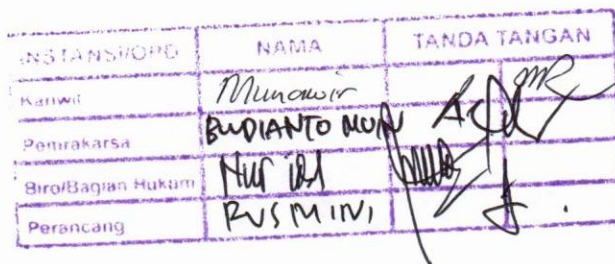 INSTANSI/OPD NAMA TANDA TANGAN
Kanwil Munawir
Pemrakarsa BUDIANTO MUIN
Biro/Bagian Hukum Nur
Perancang RUSMINI